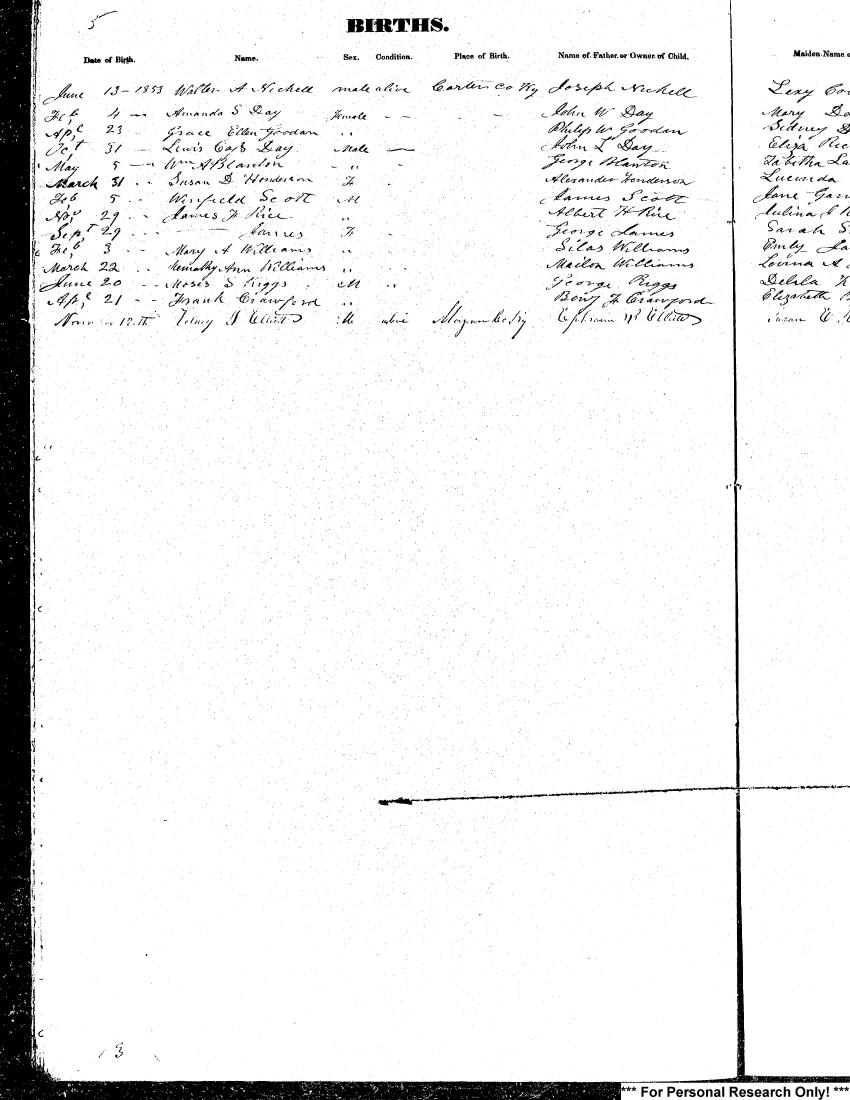 5
BIRTHS.
Date of Birth. Name. Sex. Condition. Place of Birth. Name of Father or Owner of Child. Maiden Name
June 13 - 1853 Walter A Nickell male alive Carter co Ky Joseph Nickell Lexy
Feb 4 - - Amanda S Day Female - - - - John W Day Mary
Apl 23 - Grace Ellen Goodan " Philip W Goodan Sidney
Oct 31 - Lewis Cass Day Male — John L Day Eliza Ric
May 5 - - Wm A Blanton - " - George Blanton Tabitha La
March 31 - - Susan D Henderson F - Alexander Henderson Lucinda
Feb 5 - - Winfield Scott M - James Scott Jane Gan
Nov 29 - - James F Rice " Albert H Rice
Sept 29 - - — James F - George James Sarah S
Feb 3 - - Mary A Williams " Silas Williams Emily Ja
March 22 - - Ann Williams " Mailon Williams Lovina A
June 20 - - Moses S Riggs M " George Riggs Delila
Apl 21 - - Frank Crawford " Benj F Crawford Elizabeth
12th Elliott M alive Morgan Co Ky Ephraim Elliott Susan E
13
*** For Personal Research Only! ***